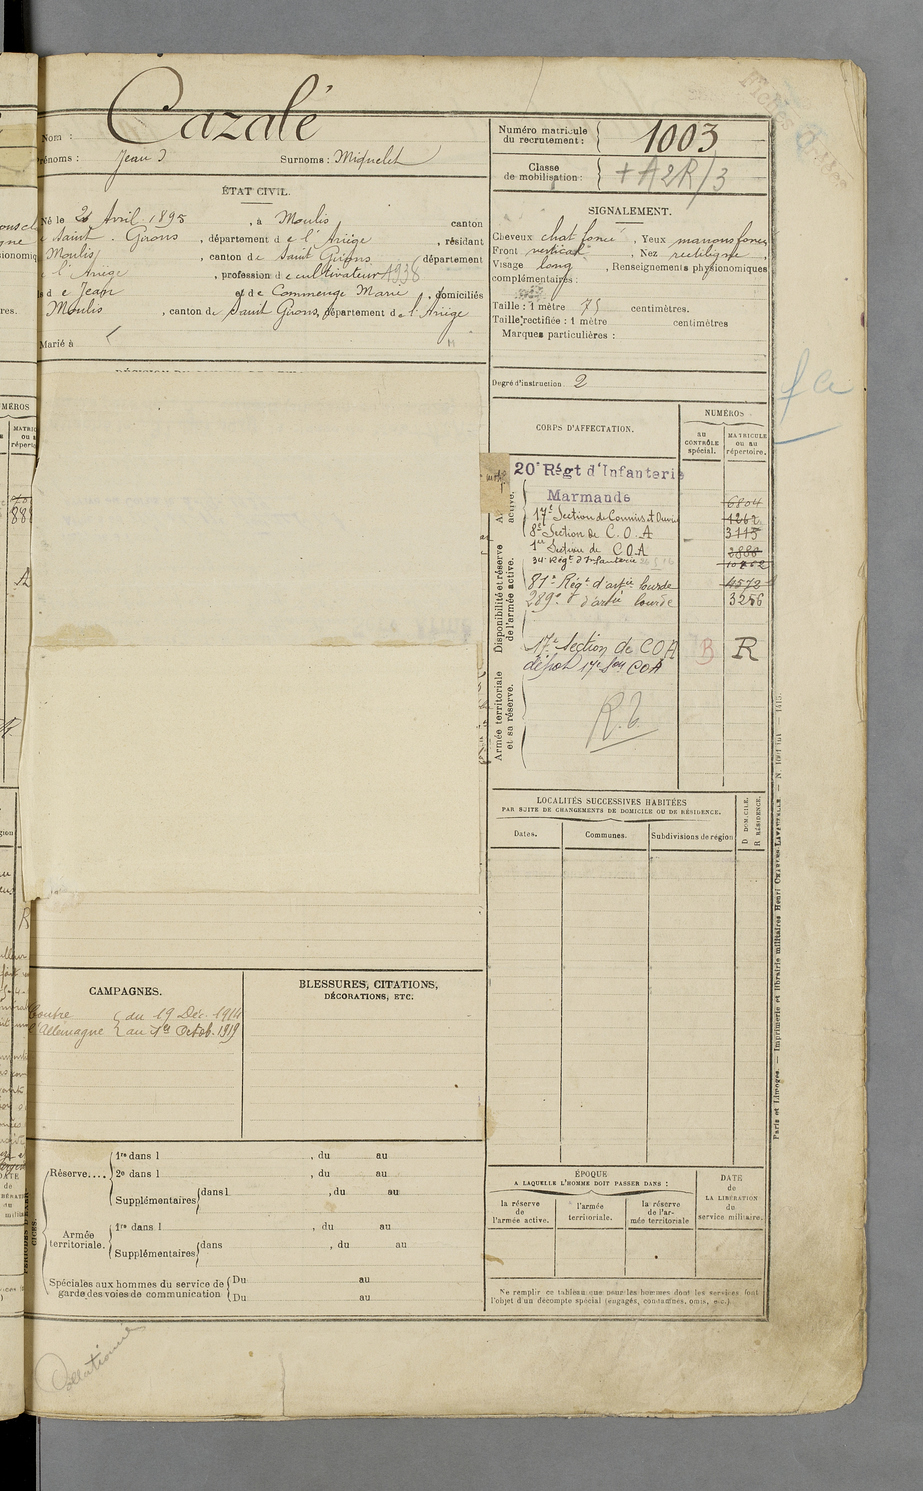 Cazalé
Nom :
Prénoms : Jean J Surnoms : Miquelet
ÉTAT CIVIL.
Né le 2 Avril 1895, à Moulis canton
Saint-Girons, département de l'Ariège, résidant
Moulis, canton de Saint Girons, département
l'Ariège, profession de cultivateur
de Jean et de Commenge Marie, domiciliés
Moulis, canton de Saint Girons, département de l'Ariège
Marié à
Numéro matricule du recrutement : 1003
Classe de mobilisation : + A2R/3
SIGNALEMENT.
Cheveux chat foncé, Yeux marrons foncés
Front vertical, Nez rectiligne,
Visage long, Renseignements physionomiques
complémentaires :
Taille : 1 mètre 75 centimètres.
Taille rectifiée : 1 mètre centimètres
Marques particulières :
Degré d'instruction 2
CORPS D'AFFECTATION.
NUMÉROS
AU CONTRÔLE spécial.
MATRICULE OU AU répertoire.
20e Régt d'Infanterie
Marmande 6804
17e Section de Commis et Ouvr 1262
8e Section de C.O.A 3115
1re Section de C.O.A
34e Régt d'Infanterie
81e Régt d'artie lourde 4572
289e d'artie lourde 3256
17e Section de COA B R
dépot 17e Son COA
Disponibilité et réserve de l'armée active.
Armée territoriale et sa réserve.
LOCALITÉS SUCCESSIVES HABITÉES
PAR SUITE DE CHANGEMENTS DE DOMICILE OU DE RÉSIDENCE.
Dates. Communes. Subdivisions de région
D DOMICILE.
R RÉSIDENCE.
CAMPAGNES.
Contre du 19 Déc. 1914
l'Allemagne au 1er Octob. 1919
BLESSURES, CITATIONS,
DÉCORATIONS, ETC.
Réserve.... 1re dans l , du au
2e dans l , du au
Supplémentaires dans l , du au
Armée territoriale. 1re dans l , du au
Supplémentaires dans , du au
Spéciales aux hommes du service de garde des voies de communication Du au
Du au
ÉPOQUE
A LAQUELLE L'HOMME DOIT PASSER DANS :
la réserve de l'armée active.
l'armée territoriale.
la réserve de l'armée territoriale
DATE de LA LIBÉRATION du service militaire.
Ne remplir ce tableau que pour les hommes dont les services font
l'objet d'un décompte spécial (engagés, condamnés, omis, etc.)
Paris et Limoges. — Imprimerie et librairie militaires Henri CHARLES-LAVAUZELLE.
Collationné